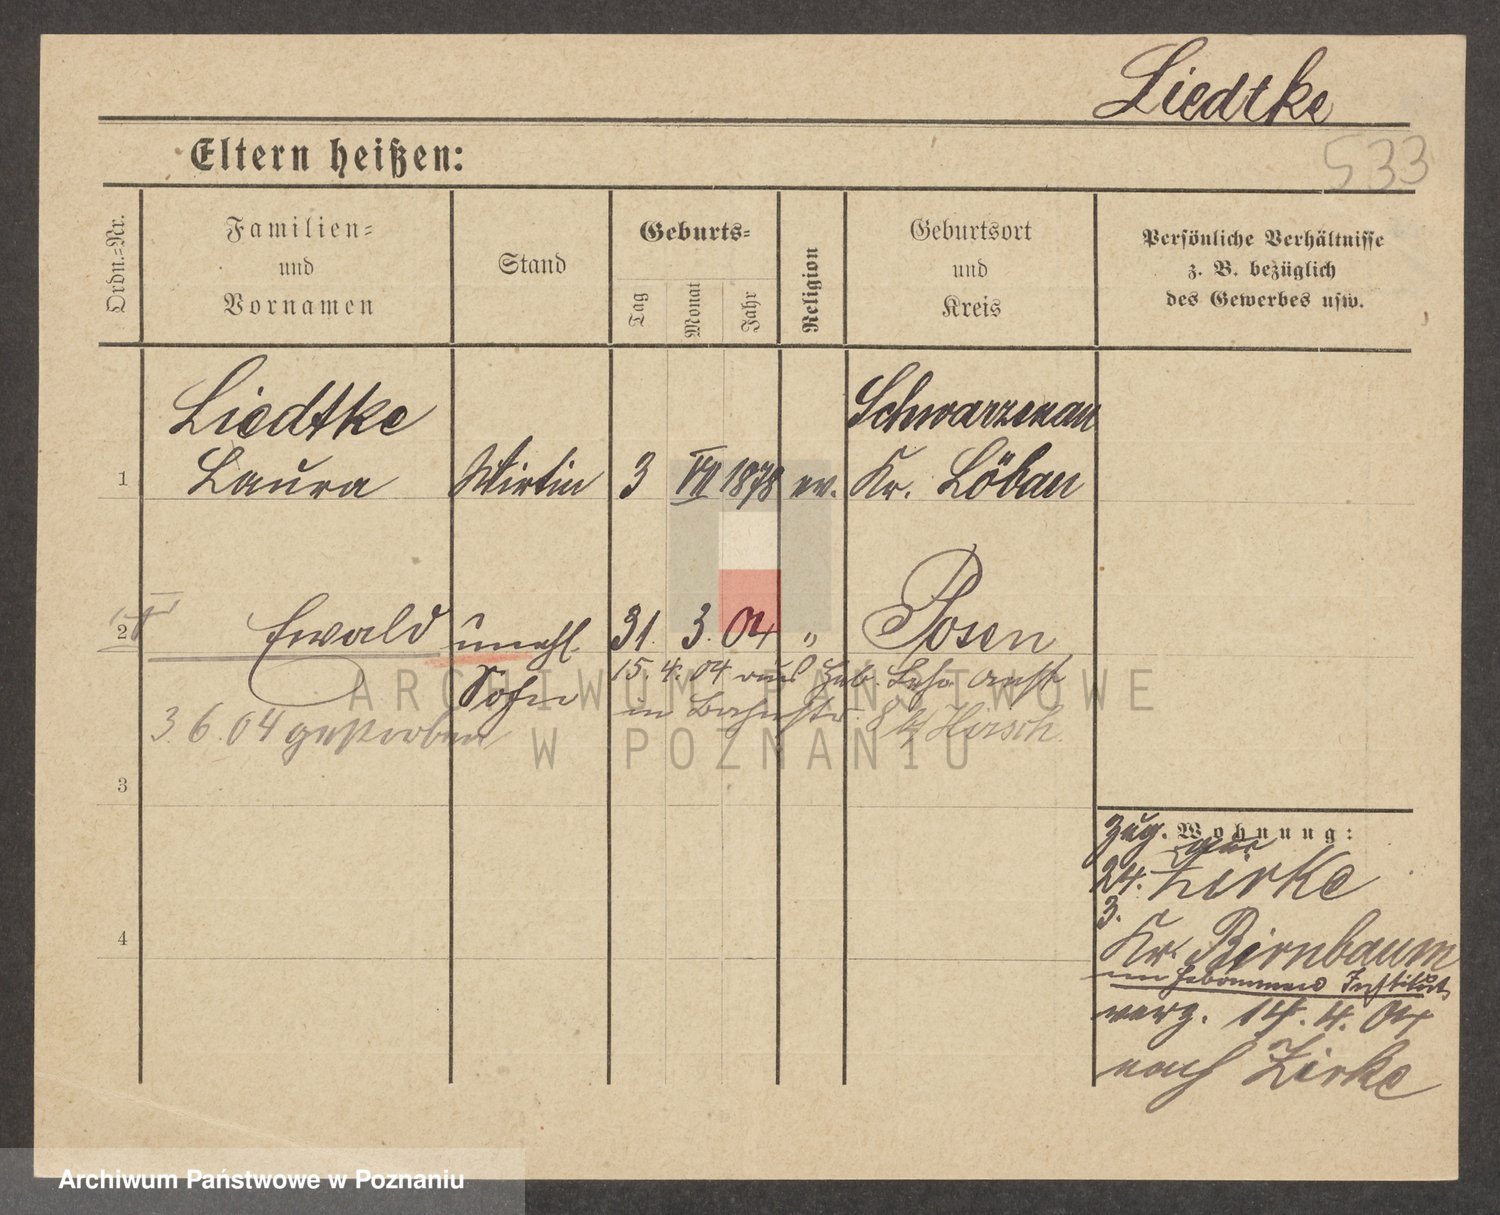 Liedtke
533
Eltern heißen:
Ordn.=Nr.
Familien=
und
Vornamen
Stand
Geburts=
Tag
Monat
Jahr
Religion
Geburtsort
und
Kreis
Persönliche Verhältnisse
z. B. bezüglich
des Gewerbes usw.
Liedtke
Schwarzenau
1 Laura Wirtin 3 VII 1878 ev. Kr. Löbau
2 Ewald unehl. 31. 3. 04 " Posen
Sohn
15. 4. 04 aus Heb. Lehr Anst
in Bahnstr. 8 b/ Hirsch.
3. 6. 04 gestorben
3
4
zug. Wohnung:
24. aus Zirke
3.
Kr. Birnbaum
im Hebammen Institut
verz. 14. 4. 04
nach Zirke
ARCHIWUM PAŃSTWOWE
W POZNANIU
Archiwum Państwowe w Poznaniu